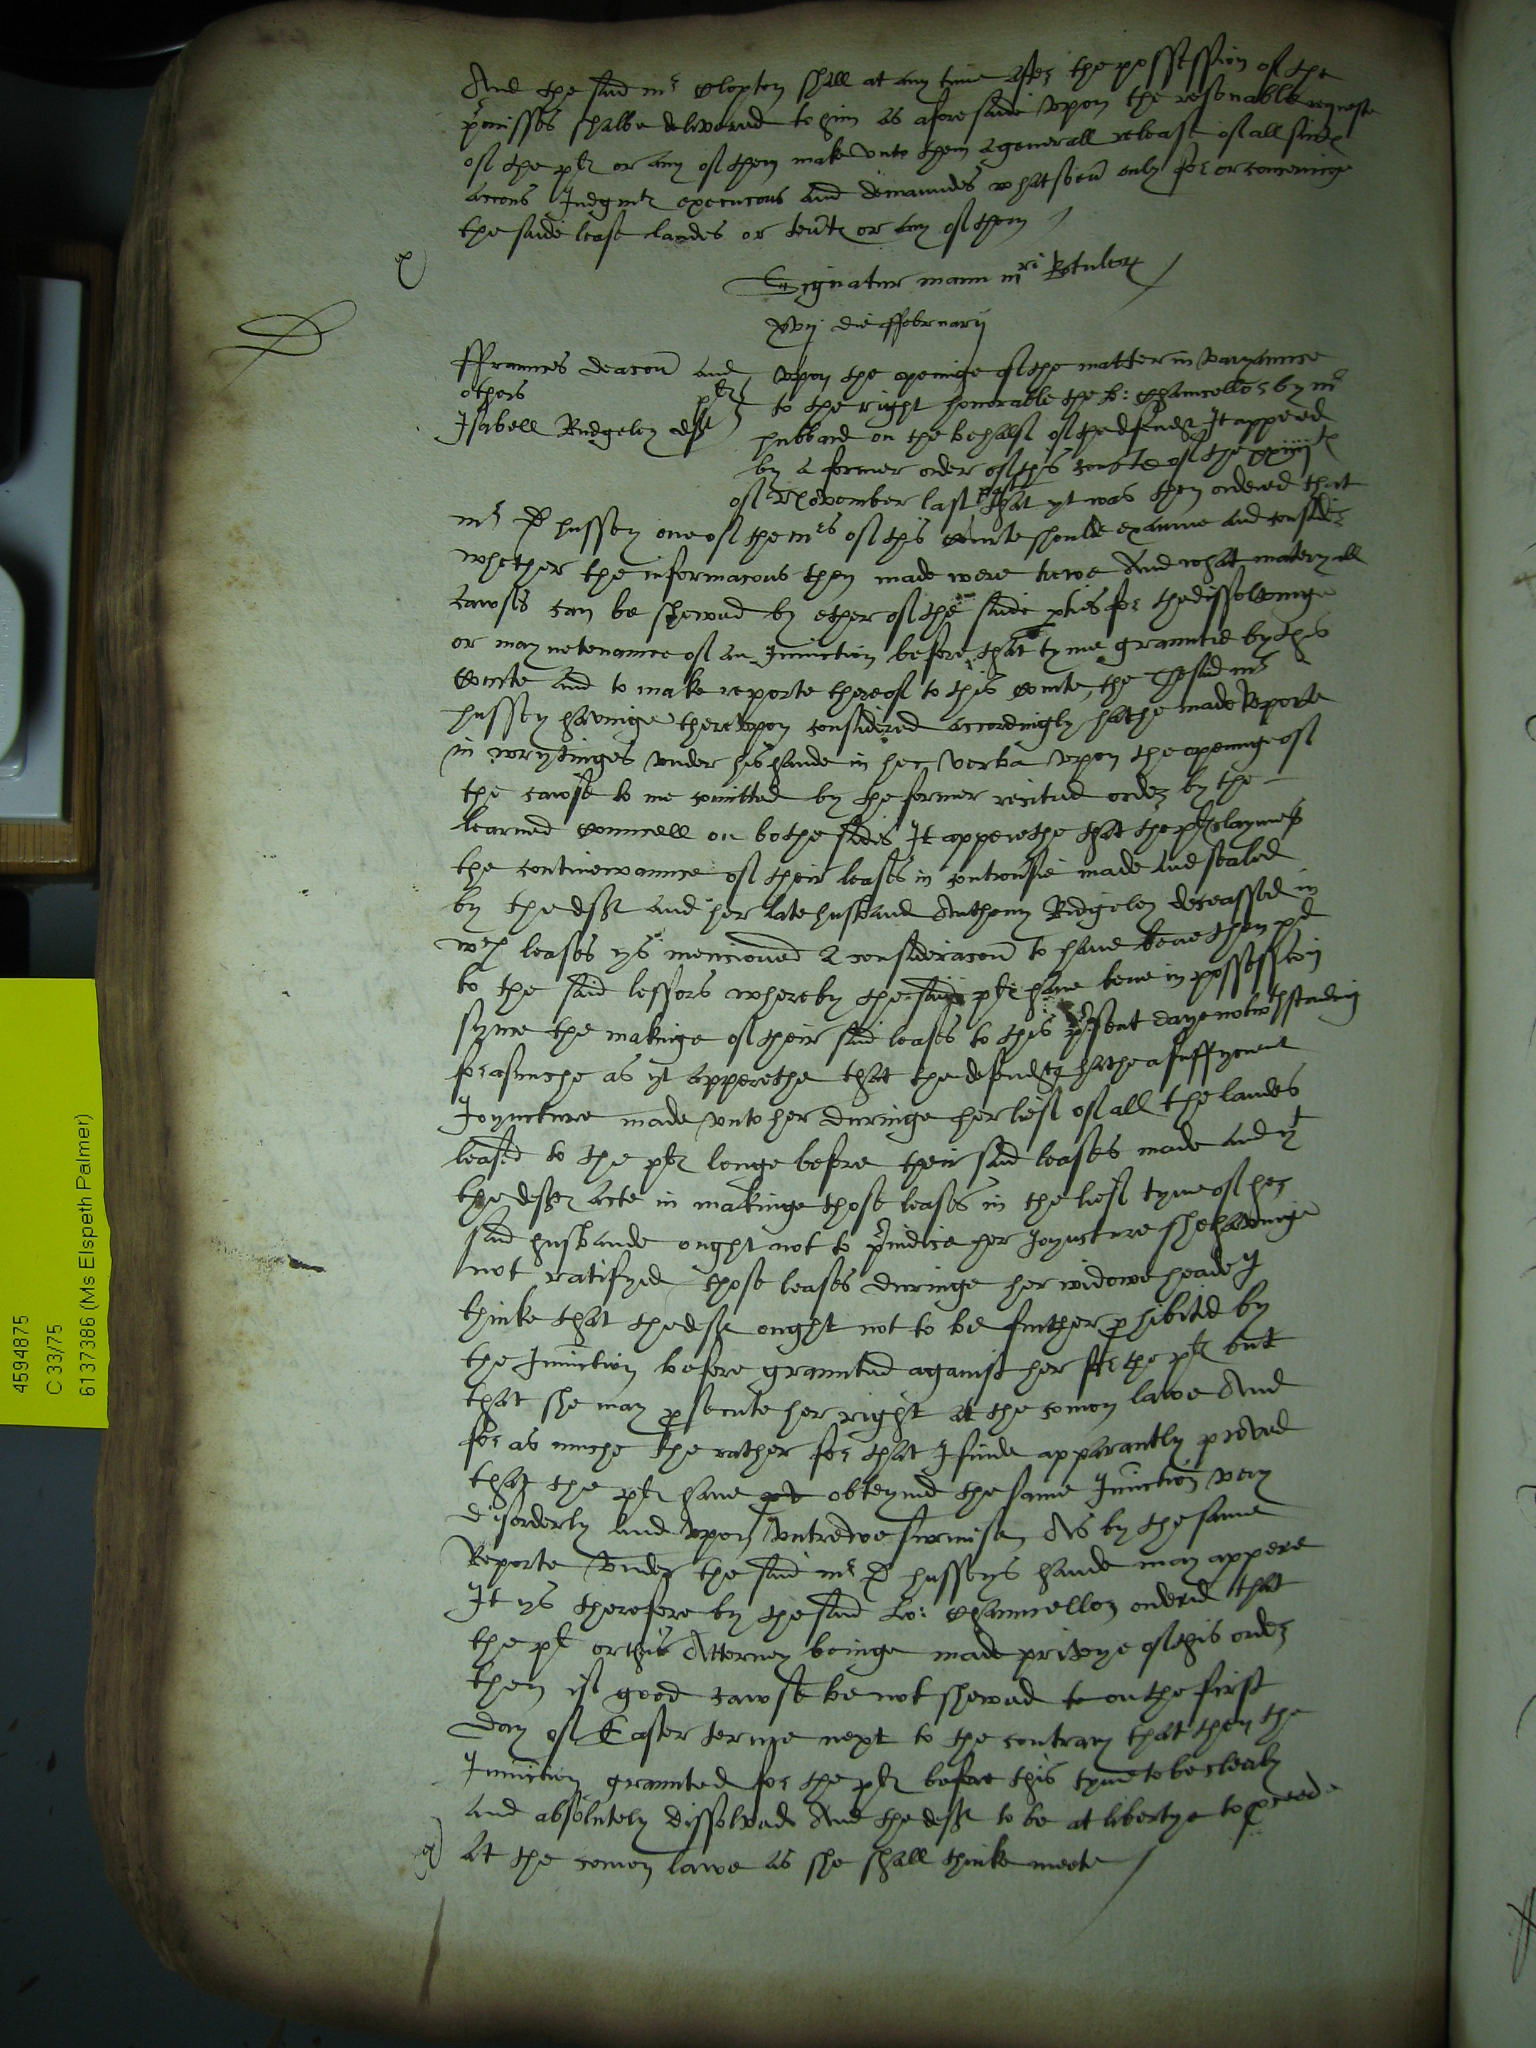 And the said mr Clopton shall at any time after the possession of the
p'misses shalbe delivered to him as aforesaide vpon the resonable requeste
of the plts or any of them make vnto them a generall release of all suits
accons Judgmts execucons and demaundes whatsoeuer only for or concerninge
the saide lease landes or tents or any of them /
Signatur manu mri Rotulor /
xvij die ffebruarij
ffraunces Deacon and
others plts
Isabell Rudgeley deft
vpon the openinge of the matter in varyaunce
to the right honorable the L: Chauncellor by mr
hubbard on the behalf of the defendt It appered
by a former order of this courte of the xxiiijth
of November last past that yt was then ordered that
mr D hussey one of the mrs of this Courte shoulde examine and consider
whether the informacons then made were trewe And what materyall
cawses can be shewed by ether of the saide pties for the dissolvinge
or maynetenance of an Iniuction before that tyme graunted by this
Courte and to make reporte thereof to this Courte, the said mr
hussey havinge therevpon considired accordingly hathe made Reporte
in wrytinges vnder his hande in hec verba vpon the openinge of
the cawse to me comitted by the former recited order by the
learned Councell on bothe sides It apperethe that the plts clayme
the continewaunce of their leases in controu'sie made and sealed
by the deft and her late husband Anthony Ridgeley deceassed in
wch leases ys mencioned a consideracon to haue bene then pd
to the said lessors whereby the said plts haue bene in possession
synce the makinge of their said leases to this p'sent daye notwthstandig
forasmuche as yt apperethe that the defendt hathe a suffycient
Joyncture made vnto her duringe her lief of all the landes
leased to the plts longe before their said leases made and yt
the defts acte in makinge those leases in the lief tyme of her
said husbande ought not to p'iudice her Joyncture she havinge
not ratifyed those leases duringe her widowe heade I
thinke that the deft ought not to be further p'hibited by
the Iniuction before graunted against her for the plts but
that she may p'secute her right at the comon lawe And
for as muche the rather for that I finde apparantly proved
that the plts haue obteyned the same Iniuction very
disorderly and vpon vntrewe surmise, As by the same
Reporte vnder the said mr D husseys hande may appere
It ys therefore by the said Lo: Chauncellor ordered that
the plt or his Attorney beinge made privye of this order
then if good cawse be not shewed to on the first
day of Easter terme next to the contrary that then the
Iniuction graunted for the plts before this tyme to be clearly
and absolutely dissolved And the deft to be at libertye to p'ceede
at the comon lawe as she shall thinke meete /
4594875
C 33/75
6137386 (Ms Elspeth Palmer)